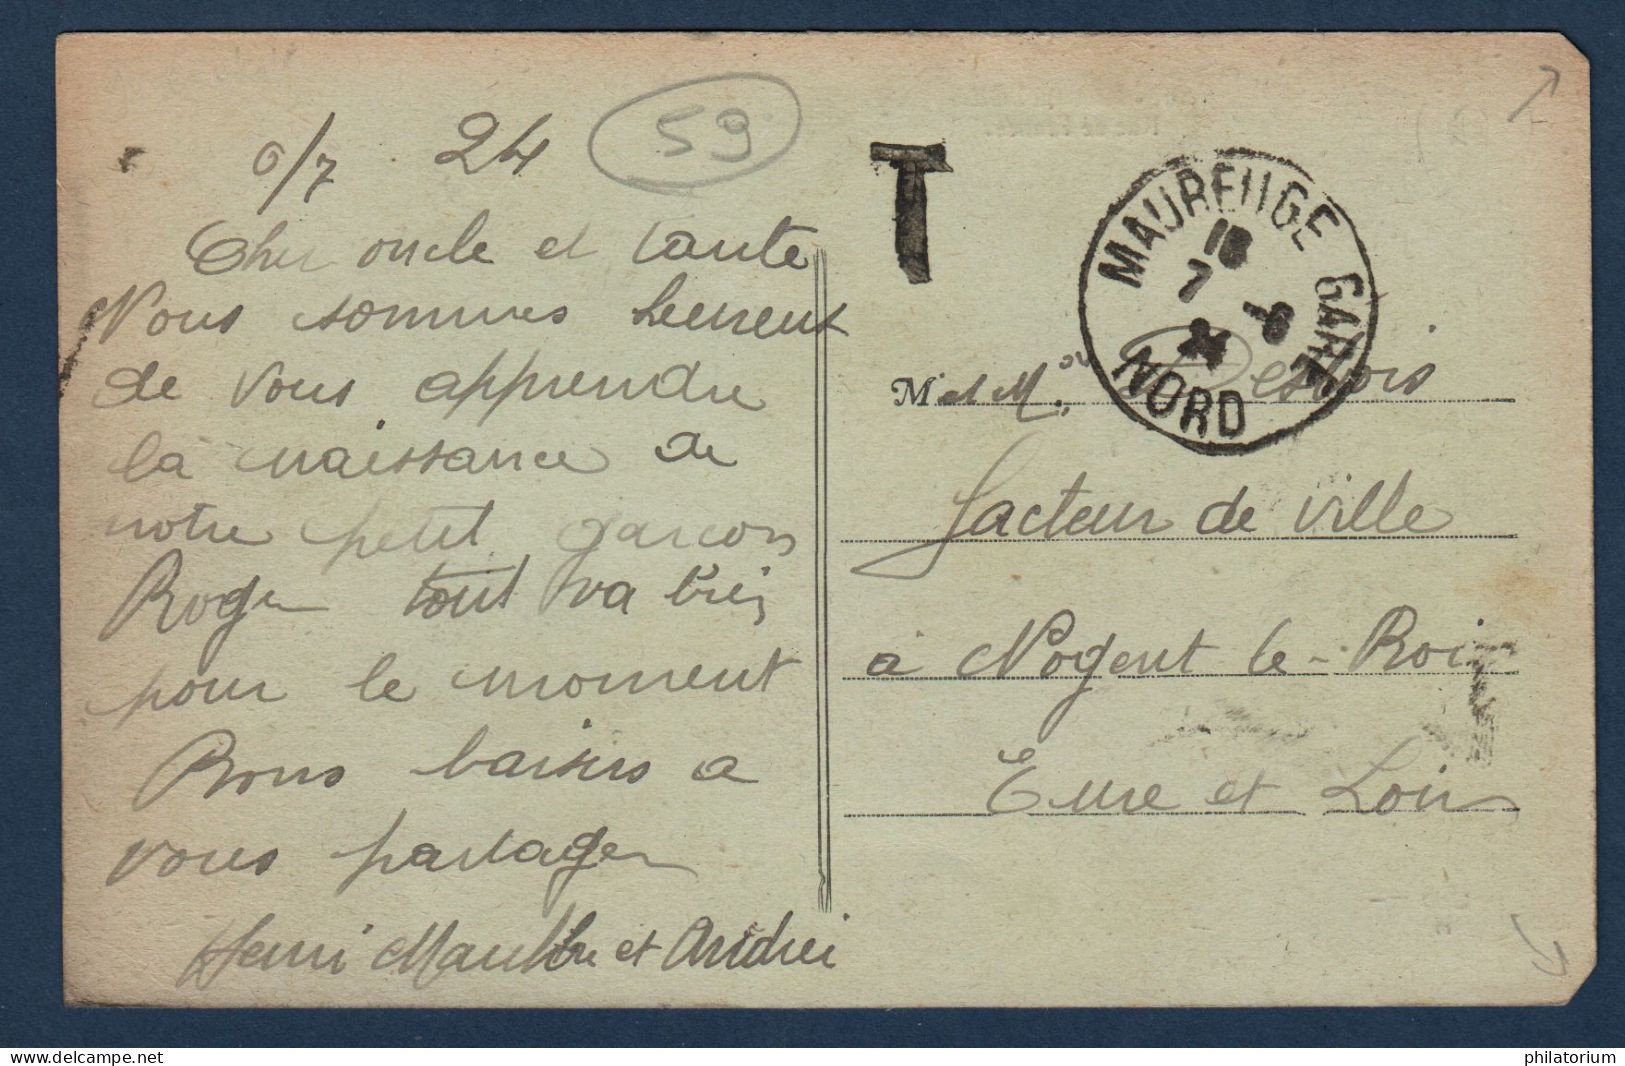 6/7 24
59
Cher oncle et tante
Nous sommes heureux
de vous apprendre
la naissance de
notre petit garcon
Roger tout va bien
pour le moment
Bons baisers a
vous partager
Henri et André
T
MAUBEUGE GARE
18
7 -6
24
NORD
M et Mme
facteur de ville
à Nogent le-Roi
Eure et Loir
philatorium